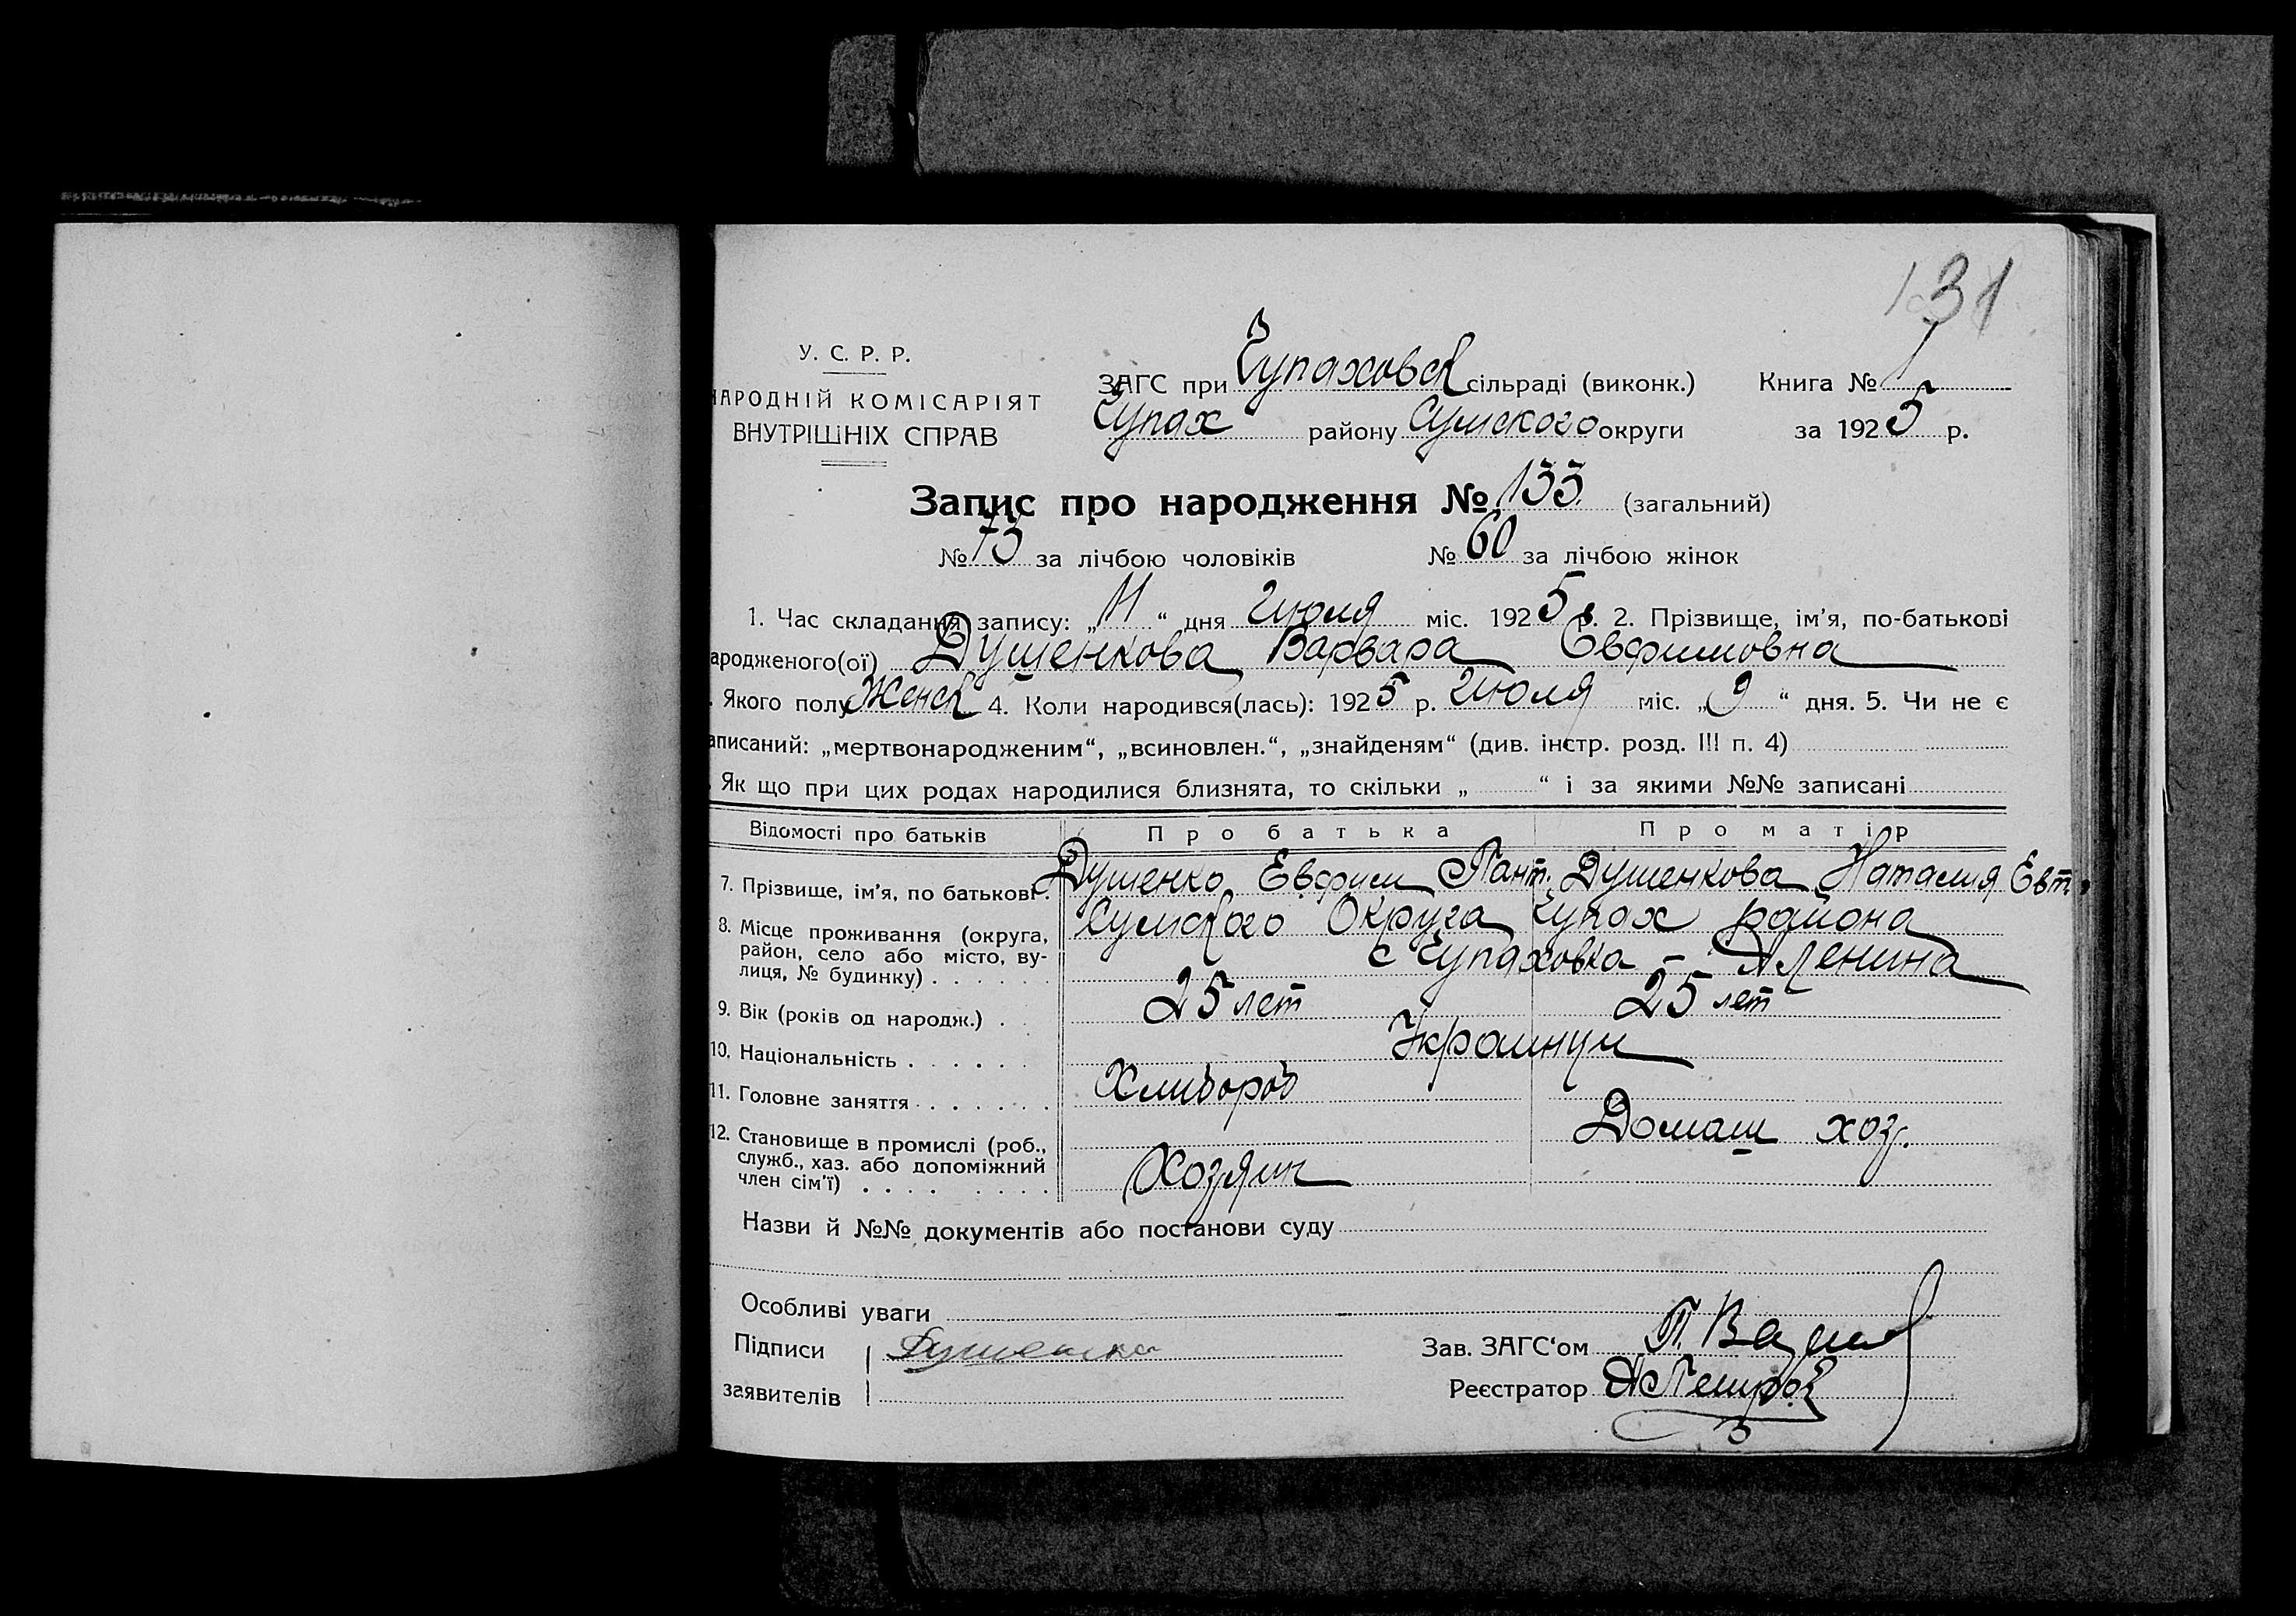 131
У. С. Р. Р.
НАРОДНІЙ КОМІСАРІЯТ
ВНУТРІШНІХ СПРАВ
ЗАГС при Чупаховск сільраді (виконк.) Книга № 1
Чупах району Сумского округи за 1925 р.
Запис про народження № 133 (загальний)
№ 73 за лічбою чоловіків № 60 за лічбою жінок
1. Час складання запису: „11“ дня Июля міс. 1925 р. 2. Прізвище, ім’я, по-батькові
ародженого(ої) Душенкова Варвара Евфимовна
. Якого полу Женск 4. Коли народився(лась): 1925 р. Июля міс. „9“ дня. 5. Чи не є
аписаний: „мертвонародженим“, „всиновлен.“, „знайденям“ (див. інстр. розд. III п. 4)
. Як що при цих родах народилися близнята, то скільки „ “ і за якими №№ записані
Відомості про батьків Про батька Про матір
7. Прізвище, ім’я, по батькові. Душенко Евфим Пант. Душенкова Наталия Евт.
8. Місце проживання (округа, район, село або місто, вулиця, № будинку) Сумского Округа Чупах района
с Чупаховка – Ленина
9. Вік (років од народж.) 25 лет 25 лет
10. Національність Украинци
11. Головне заняття Хлибороб
Домаш хоз.
12. Становище в промислі (роб., служб., хаз. або допоміжний член сім’ї) Хозяин
Назви й №№ документів або постанови суду
Особливі уваги
Підписи Душенко Зав. ЗАГС‘ом
заявителів Реєстратор